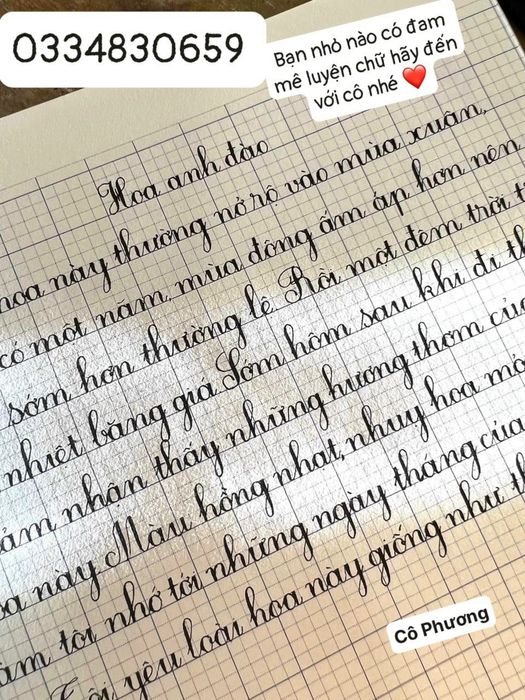 0334830659
Bạn nhỏ nào có đam
mê luyện chữ hãy đến
với cô nhé ❤️
Hoa anh đào
hoa này thường nở rộ vào mùa xuân,
có một năm, mùa đông ấm áp hơn nên
sớm hơn thường lệ. Rồi một đêm trời
nhiệt băng giá. Sớm hôm sau khi đi
cảm nhận thấy những hương thơm của
này. Màu hồng nhạt, nhụy hoa
tôi nhớ tới những ngày tháng của
Tôi yêu loài hoa này giống như
Cô Phương